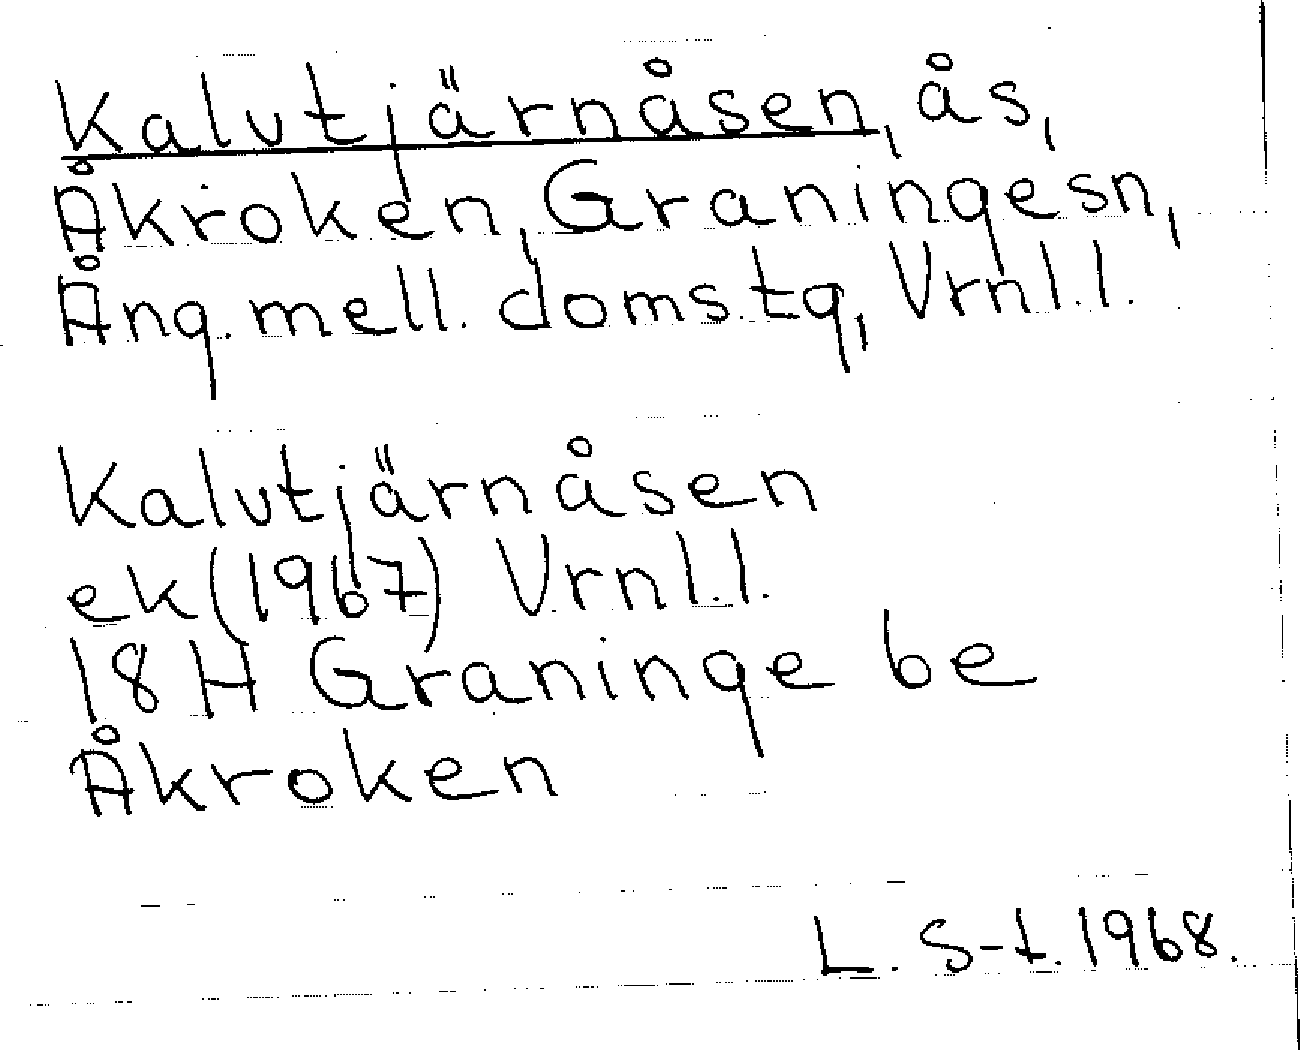 Kalvtjärnåsen, ås,
Åkroken, Graningesn,
Ång. mell. doms.tg, Vrnl.l.
Kalvtjärnåsen
ek (1967) Vrnl.l.
18H Graninge be
Åkroken
L. S-t. 1968.